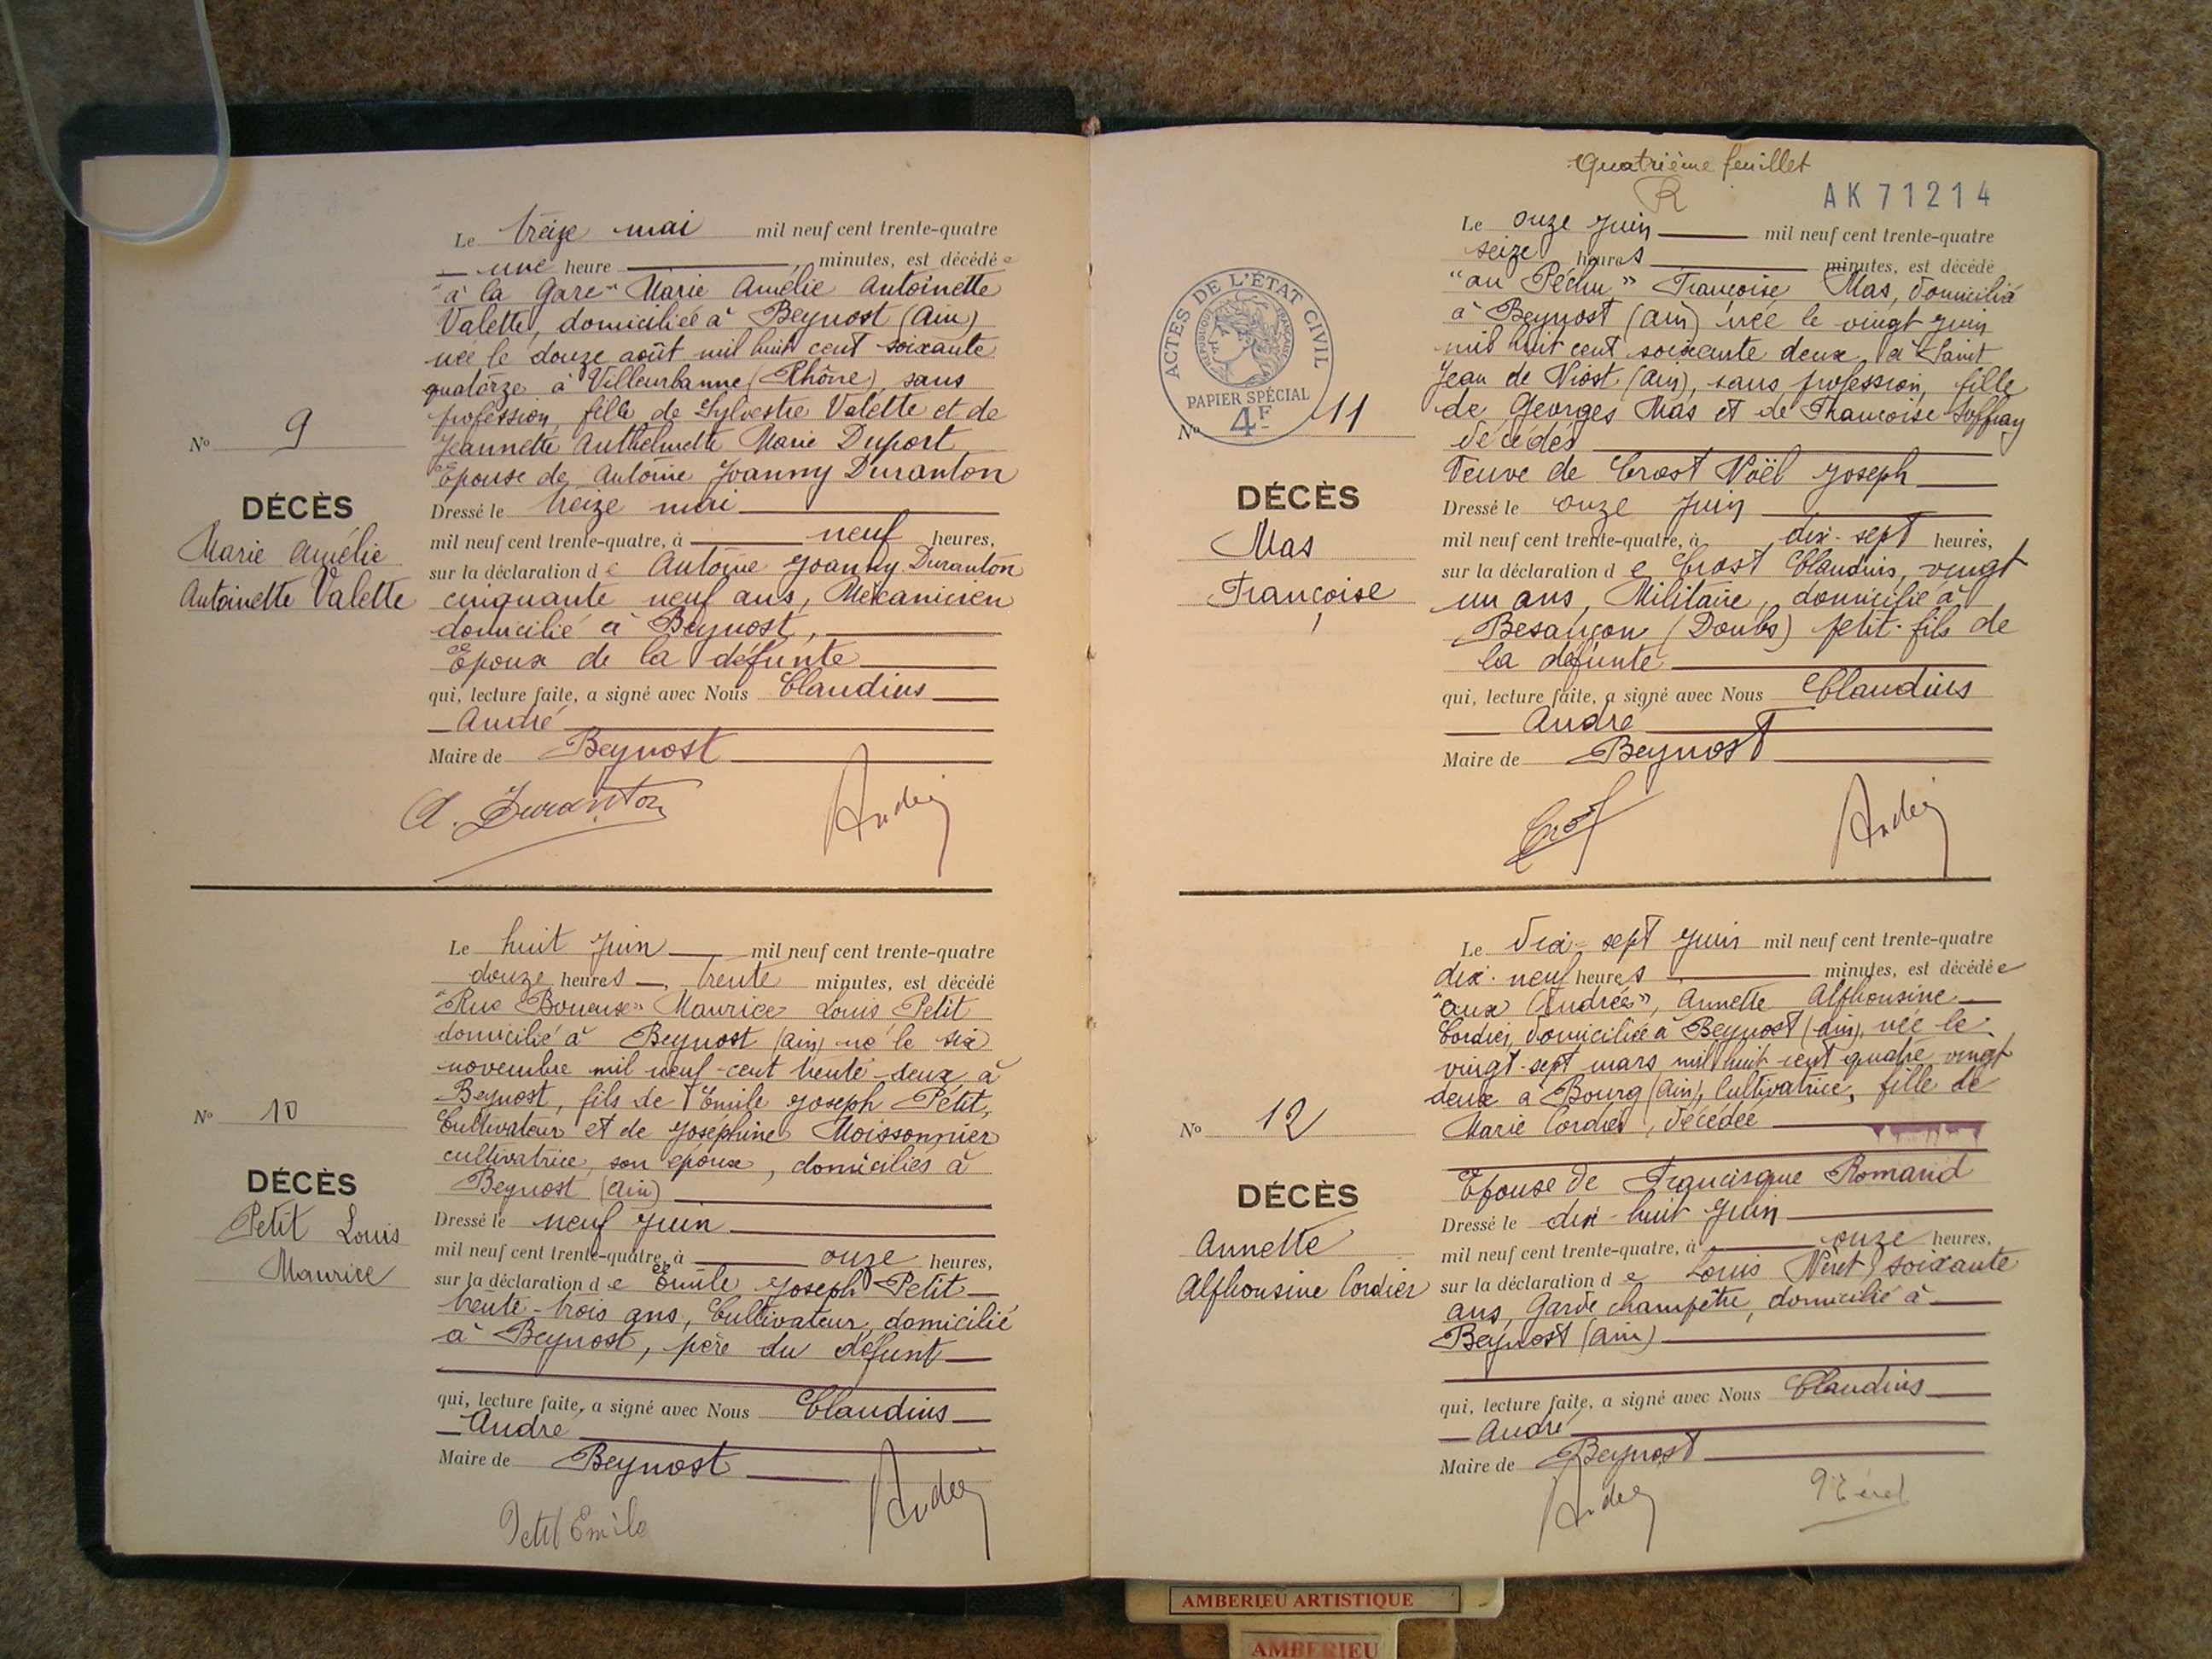 N° 9
DÉCÈS
Marie Amélie
Antoinette Valette
Le treize mai mil neuf cent trente-quatre
une heure minutes, est décédée
"à la Gare" Marie Amélie Antoinette
Valette, domiciliée à Beynost (Ain)
née le douze août mil huit cent soixante
quatorze à Villeurbanne (Rhône), sans
profession, fille de Sylvestre Valette et de
Jeannette Anthelmette Marie Duport
Epouse de Antoine Joanny Duranton
Dressé le treize mai
mil neuf cent trente-quatre, à neuf heures,
sur la déclaration de Antoine Joanny Duranton
cinquante neuf ans, Mékanicien
domicilié à Beynost,
Epoux de la défunte
qui, lecture faite, a signé avec Nous Claudius
André
Maire de Beynost
A. Duranton
André
N° 10
DÉCÈS
Petit Louis
Maurice
Le huit Juin mil neuf cent trente-quatre
douze heures, trente minutes, est décédé
"Rue Boueuse" Maurice Louis Petit
domicilié à Beynost (Ain) né le six
novembre mil neuf-cent trente-deux à
Beynost, fils de Emile Joseph Petit,
Cultivateur et de Joséphine Moissonnier
cultivatrice, son épouse, domiciliés à
Beynost (Ain)
Dressé le neuf Juin
mil neuf cent trente-quatre, à onze heures,
sur la déclaration de Emile Joseph Petit
trente-trois ans, Cultivateur, domicilié
à Beynost, père du défunt
qui, lecture faite, a signé avec Nous Claudius
André
Maire de Beynost
Petit Emile
André
Quatrième feuillet
R
AK 71214
ACTES DE L'ÉTAT CIVIL
RÉPUBLIQUE FRANÇAISE
PAPIER SPÉCIAL
4F
N° 11
DÉCÈS
Mas
Françoise
Le onze Juin mil neuf cent trente-quatre
seize heures minutes, est décédé
"au Péchu" Françoise Mas, domiciliée
à Beynost (Ain) née le vingt Juin
mil huit cent soixante deux, à Saint
Jean de Niost (Ain), sans profession, fille
de Georges Mas et de Francoise Joffray
décédés
Veuve de Crost Noël Joseph
Dressé le onze Juin
mil neuf cent trente-quatre, à dix-sept heures,
sur la déclaration de Crost Claudius, vingt
un ans, Militaire, domicilié à
Besançon (Doubs) petit-fils de
la défunte
qui, lecture faite, a signé avec Nous Claudius
André
Maire de Beynost
Crost
André
N° 12
DÉCÈS
Annette
Alphonsine Cordier
Le dix-sept Juin mil neuf cent trente-quatre
dix-neuf heures minutes, est décédée
"aux Andrés", Annette Alphonsine
Cordier, domiciliée à Beynost (Ain), née le
vingt-sept mars mil huit-cent quatre vingt
deux à Bourg (Ain), Cultivatrice, fille de
Marie Cordier, décédée
Epouse de Francisque Romand
Dressé le dix-huit Juin
mil neuf cent trente-quatre, à onze heures,
sur la déclaration de Louis Néret, soixante
ans, Garde champêtre, domicilié à
Beynost (Ain)
qui, lecture faite, a signé avec Nous Claudius
André
Maire de Beynost
André
Néret
AMBERIEU ARTISTIQUE
AMBERIEU